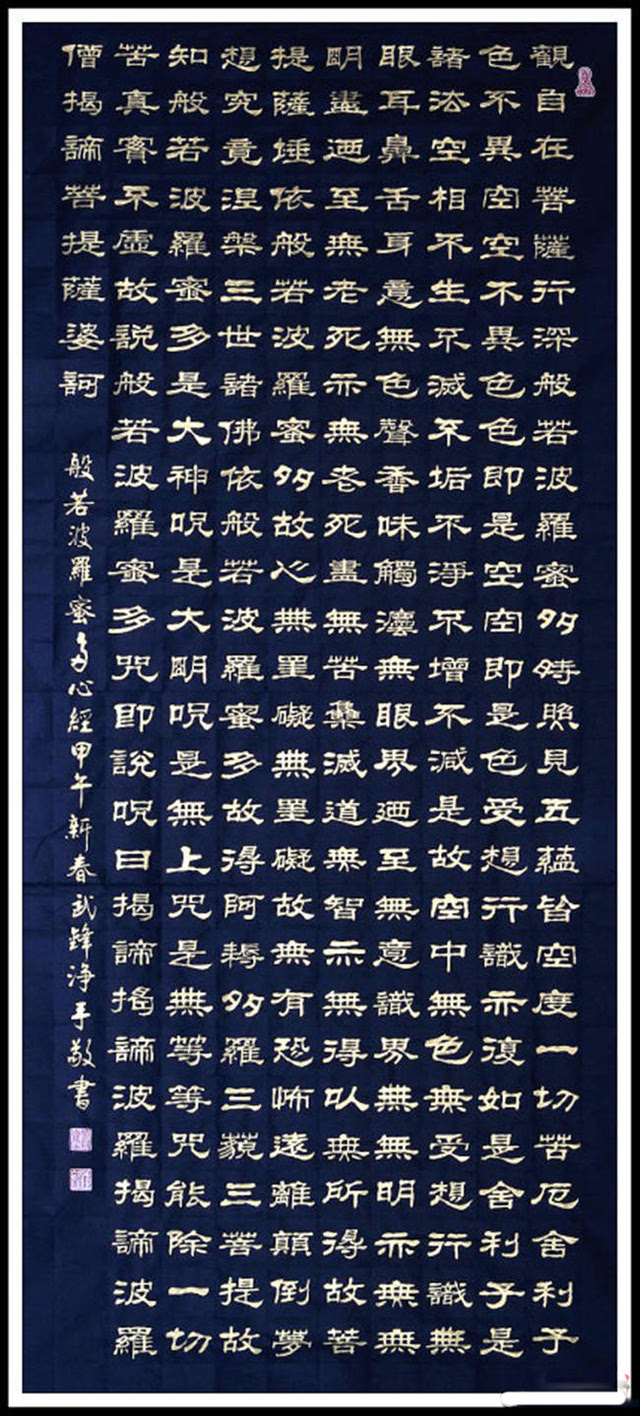 觀自在菩薩行深般若波羅蜜多時照見五蘊皆空度一切苦厄舍利子
色不異空空不異色色即是空空即是色受想行識亦復如是舍利子是
諸法空相不生不滅不垢不淨不增不減是故空中無色無受想行識無
眼耳鼻舌身意無色聲香味觸法無眼界迺至無意識界無無明亦無無
明盡迺至無老死亦無老死盡無苦集滅道無智亦無得以無所得故菩
提薩埵依般若波羅蜜多故心無罣礙無罣礙故無有恐怖遠離顛倒夢
想究竟涅槃三世諸佛依般若波羅蜜多故得阿耨多羅三藐三菩提故
知般若波羅蜜多是大神呪是大明呪是無上咒是無等等咒能除一切
苦真實不虛故說般若波羅蜜多咒即說呪曰揭諦揭諦波羅揭諦波羅
僧揭諦菩提薩婆訶
般若波羅蜜多心經甲午新春武鋒淨手敬書